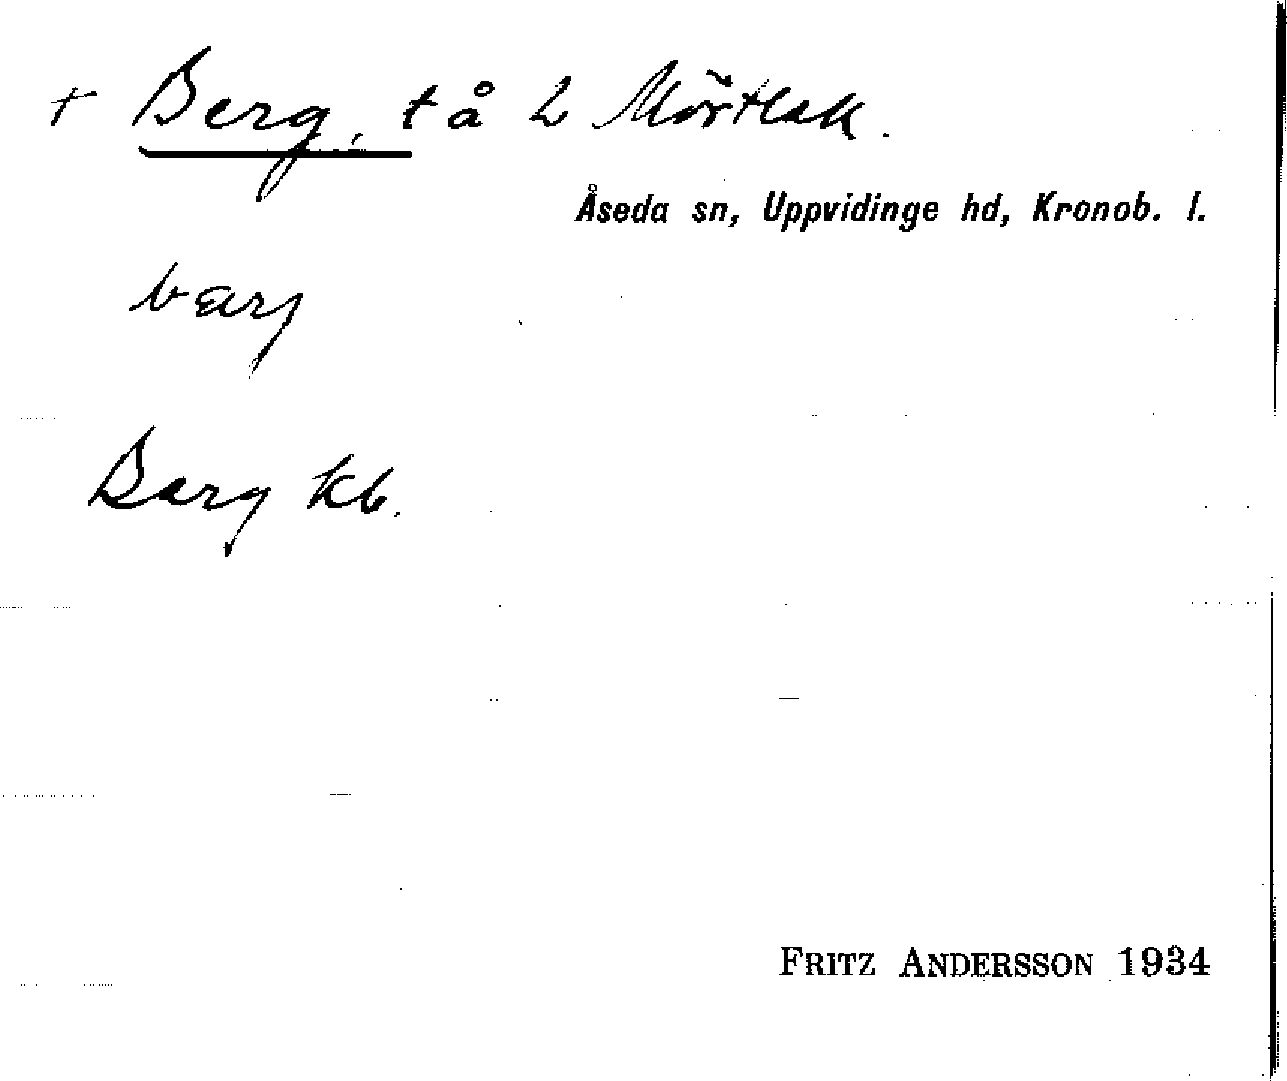 + Berg, tå L Mörtlek.
Åseda sn, Uppvidinge hd, Kronob. l.
bærj
Barg kb.
FRITZ ANDERSSON 1934